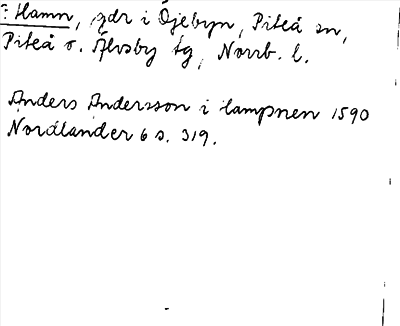 : Hamn, gdr i Öjebyn, Piteå sn,
Piteå o. Älvsby tg, Norrb. l.
Anders Andersson i hampnen 1590
Nordlander 6 s. 319.